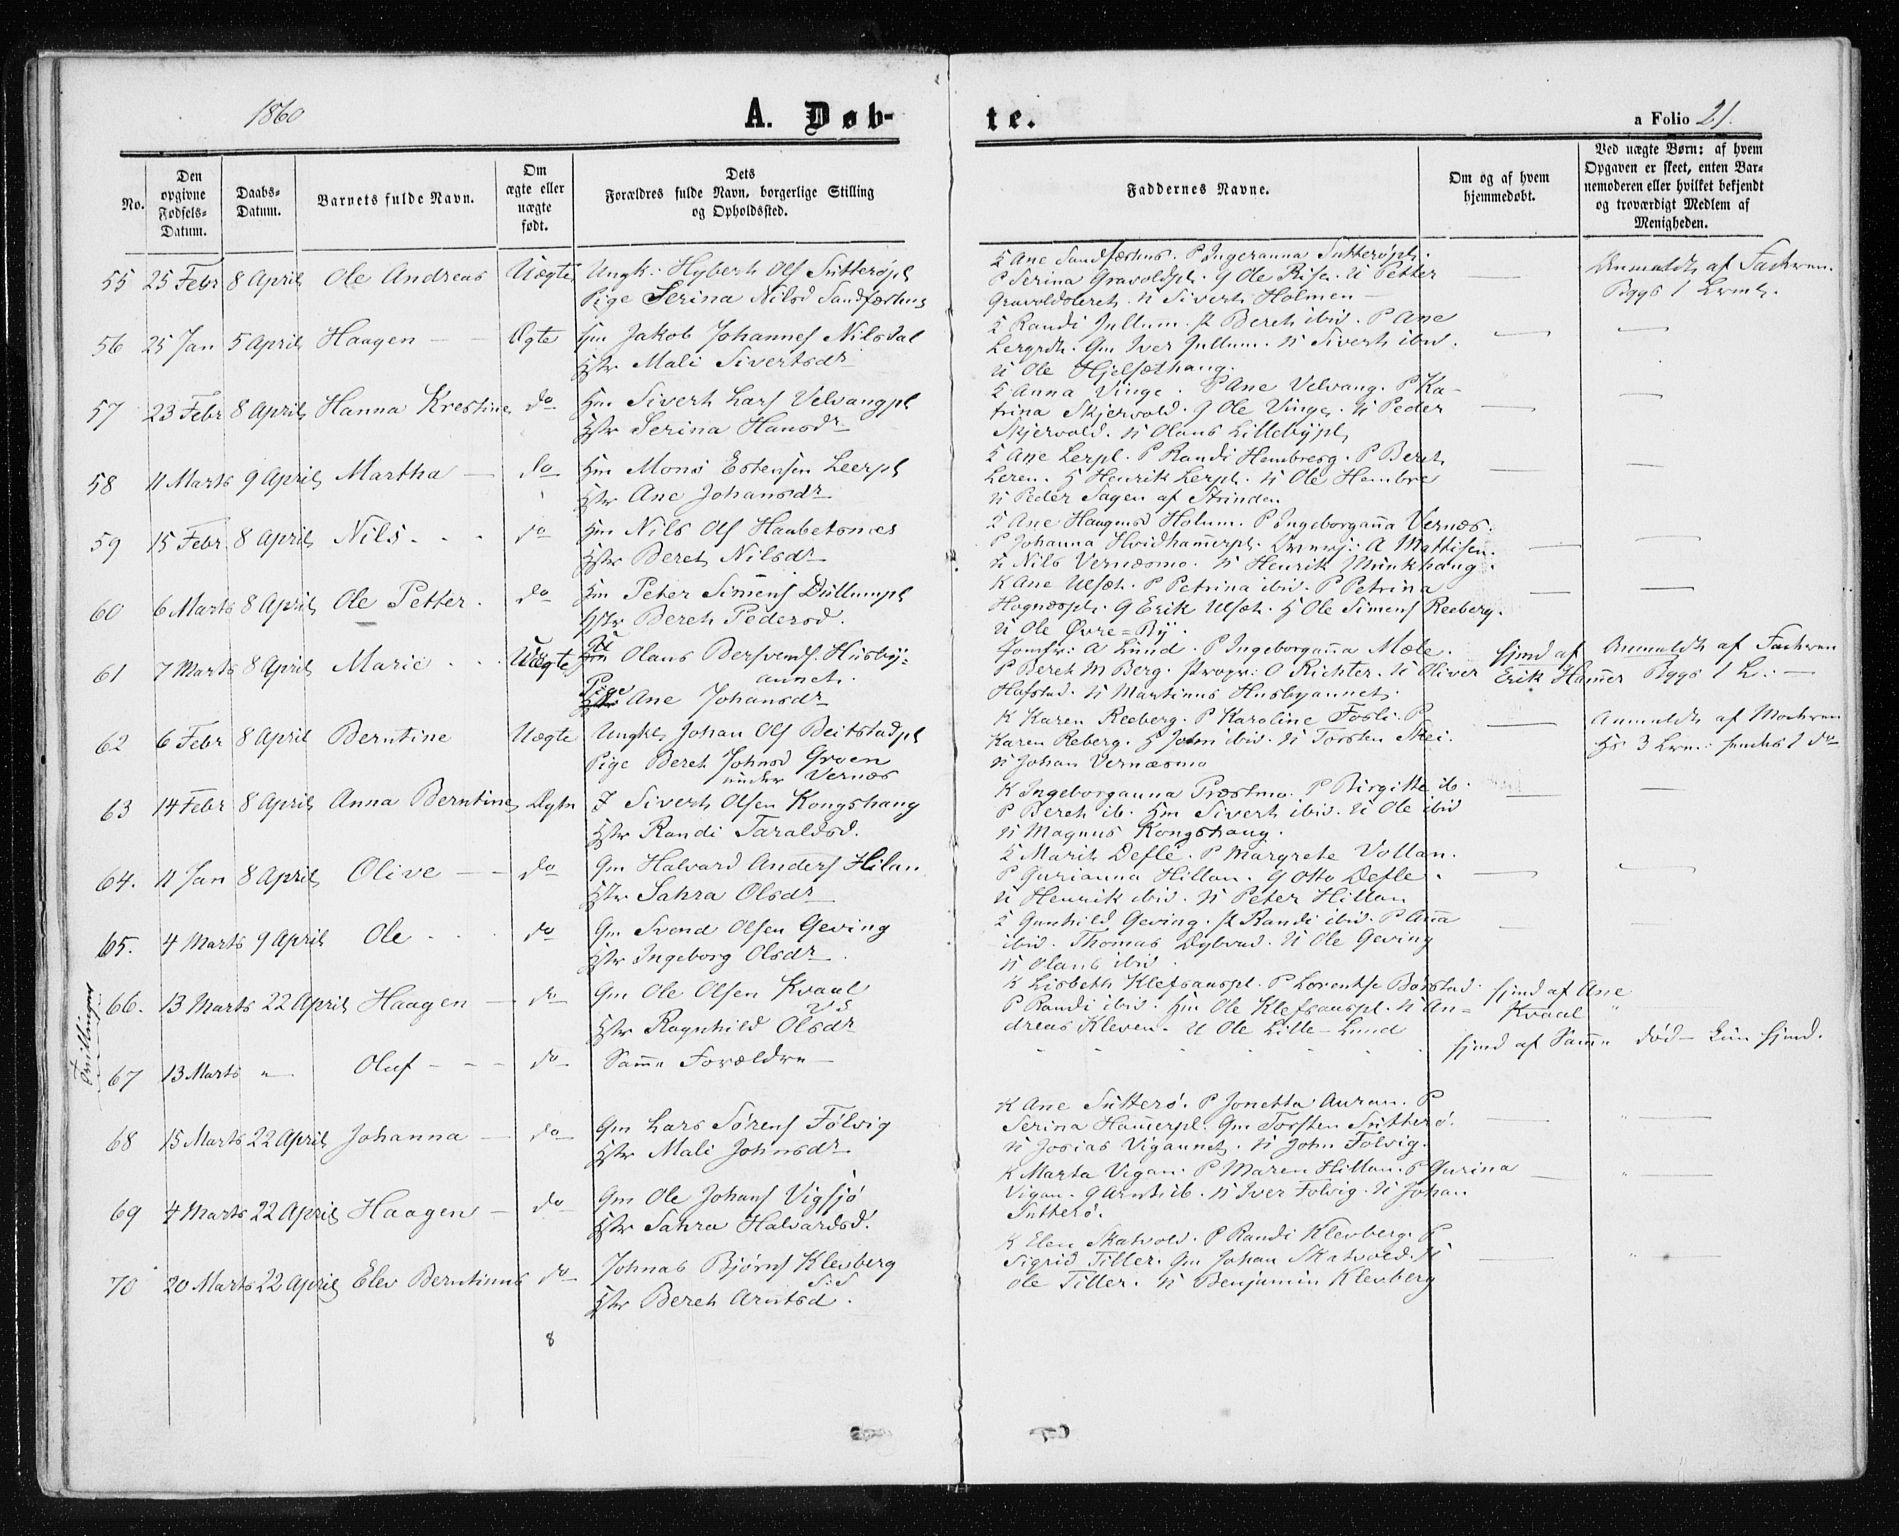 1860
A. Døb-
te.
a Folio 21.
No.
Den opgivne Fødsels-Datum.
Daabs-Datum.
Barnets fulde Navn.
Om ægte eller uægte født.
Dets Forældres fulde Navn, borgerlige Stilling og Opholdssted.
Faddernes Navne.
Om og af hvem hjemmedøbt.
Ved uægte Børn: af hvem Opgaven er skeet, enten Barnemoderen eller hvilket bekjendt og troværdigt Medlem af Menigheden.
55 25 Febr 8 April Ole Andreas Uægte Ungk: Olf Sutterøpl
Pige Serina Nilsd Sandfærhus
K Ane Sandfærhus. P Ingeranna Sutterøpl.
P Serina Gravoldpl. G Ole Rise. U Petter
U Siverh Holmen
Anmeldt af Faderen.
56 25 Jan 5 April Haagen Ægte Hm Jakob Johannes Nilsdal
Hstr Mali Sivertsdr
K Randi Jullum. P Bereh ibid. P Ane
Gm Iver Jullum. U Siverh ibid.
U Ole Hjelsethaug.
57 23 Febr 8 April Hanna Krestine do Hm Siverh Lars Velvangpl
Hstr Serina Hansdr
K Anna Vinge. P Ane Velvang. P Ka-
trina Skjervold. G Ole Vinge. U Peder
Skjervold. U Olaus Lillebypl
58 11 Marts 9 April Martha do Hm Mons Estensen Leerpl
Hstr Ane Johansdr
K Ane Lerpl. P Randi Hembreeg. P Bereh
Leren. H Henrik Lerpl. U Ole Hembre
U Peder Sagen af Strinden
59 15 Febr 8 April Nils do Hm Nils Olf Haabetsnes
Hstr Bereh Nilsdr
K Ane Haagensd Holum. P Ingeborganna Vernæs.
P Johanna Hvidhamerpl. A Mattisen.
U Nils Vernæsmo. U Henrik Munkhaug.
60 6 Marts 8 April Ole Petter do Hm Peter Simens Dullumpl
Hstr Bereh Pedersd.
K Ane Ulseh. P Petrina ibid. P Petrina
Hognæspl. G Erik Ulseh. H Ole Simens Reeberg.
U Ole Øvre=By.
61 7 Marts 8 April Marie Uægte U Olaus Bersvends Husby-
aunet.
Pige Ane Johansdr
Jomfr: A Lund. P Ingeborganna Mæle.
P Bereh M Berg. Propr: O Richter. U Oliver
Hafstad. U Martinus Husbyaunet.
hjmd af
Erik Hamer
Anmeldt af Faderen
62 6 Febr 8 April Berntine Uægte Ungk Johan Olf Beitstadpl
Pige Bereh Johnsd Groen
under Vernæs
K Karen Reeberg. P Karoline Fosli. P
Karen Reberg. H John ibid. U Torsten Skei.
U Johan Vernæsmo
Anmeldt af Moderen
63 14 Febr 8 April Anna Berntine Ægte I Siverh Olsen Kongshaug
Hstr Randi Taraldsd.
K Ingeborganna Præstmo. P Birgitte ib.
P Bereh ib. Hm Siverh ibid. U Ole ibid
U Magnus Kongshaug.
64. 11 Jan 8 April Olive do Gm Halvard Anders Hilan
Hstr Sahra Olsdr
K Marih Defle. P Margrete Vollan.
P Gurianna Hillan. G Otto Defle.
U Henrik ibid. U Peter Hillan
65. 4 Marts 9 April Ole do Gm Svend Olsen Geving
Hstr Ingeborg Olsdr
K Gunhild Geving. P Randi ibid. P Ana
ibid. Thomas Dybvad. U Ole Geving
U Olaus ibid.
Tvillinger
66. 13 Marts 22 April Haagen do Gm Ole Olsen Kvaal
Hstr Ragnhild Olsdr
K Lisbeth Klefsauspl. P Lorentse Børstad.
P Randi ibid. Hm Ole Klefsauspl. U An-
dreas Kleven. U Ole Lille-Lund
hjmd af Ane
Kvaal
67 13 Marts " Oluf do Samme Forældre
hjmd af Samme død - kun hjmd.
68 15 Marts 22 April Johanna do Gm Lars Sørens Følvig
Hstr Mali Johnsdr
K Ane Sutterø. P Jonetta Auran. P
Serina Hamerpl. Gm Torsten Sutterø.
U Josias Vigaunet. U John Folvig.
69 4 Marts 22 April Haagen do Gm Ole Johans Vigsjø
Hstr Sahra Halvardsd.
K Marta Vigan. P Maren Hillan. P Gurina
Vigan. G Arnt ib. U Iver Folvig. U Johan
Sutterø.
70 20 Marts 22 April Elev Berntinus do Johnas Bjørns Klevberg
Hstr Bereh Arntsd.
K Elen Skatvold. P Randi Klevberg. P
Sigrid Tiller. Gm Johan Skatvold. U
Ole Tiller. U Benjamin Klevberg
8